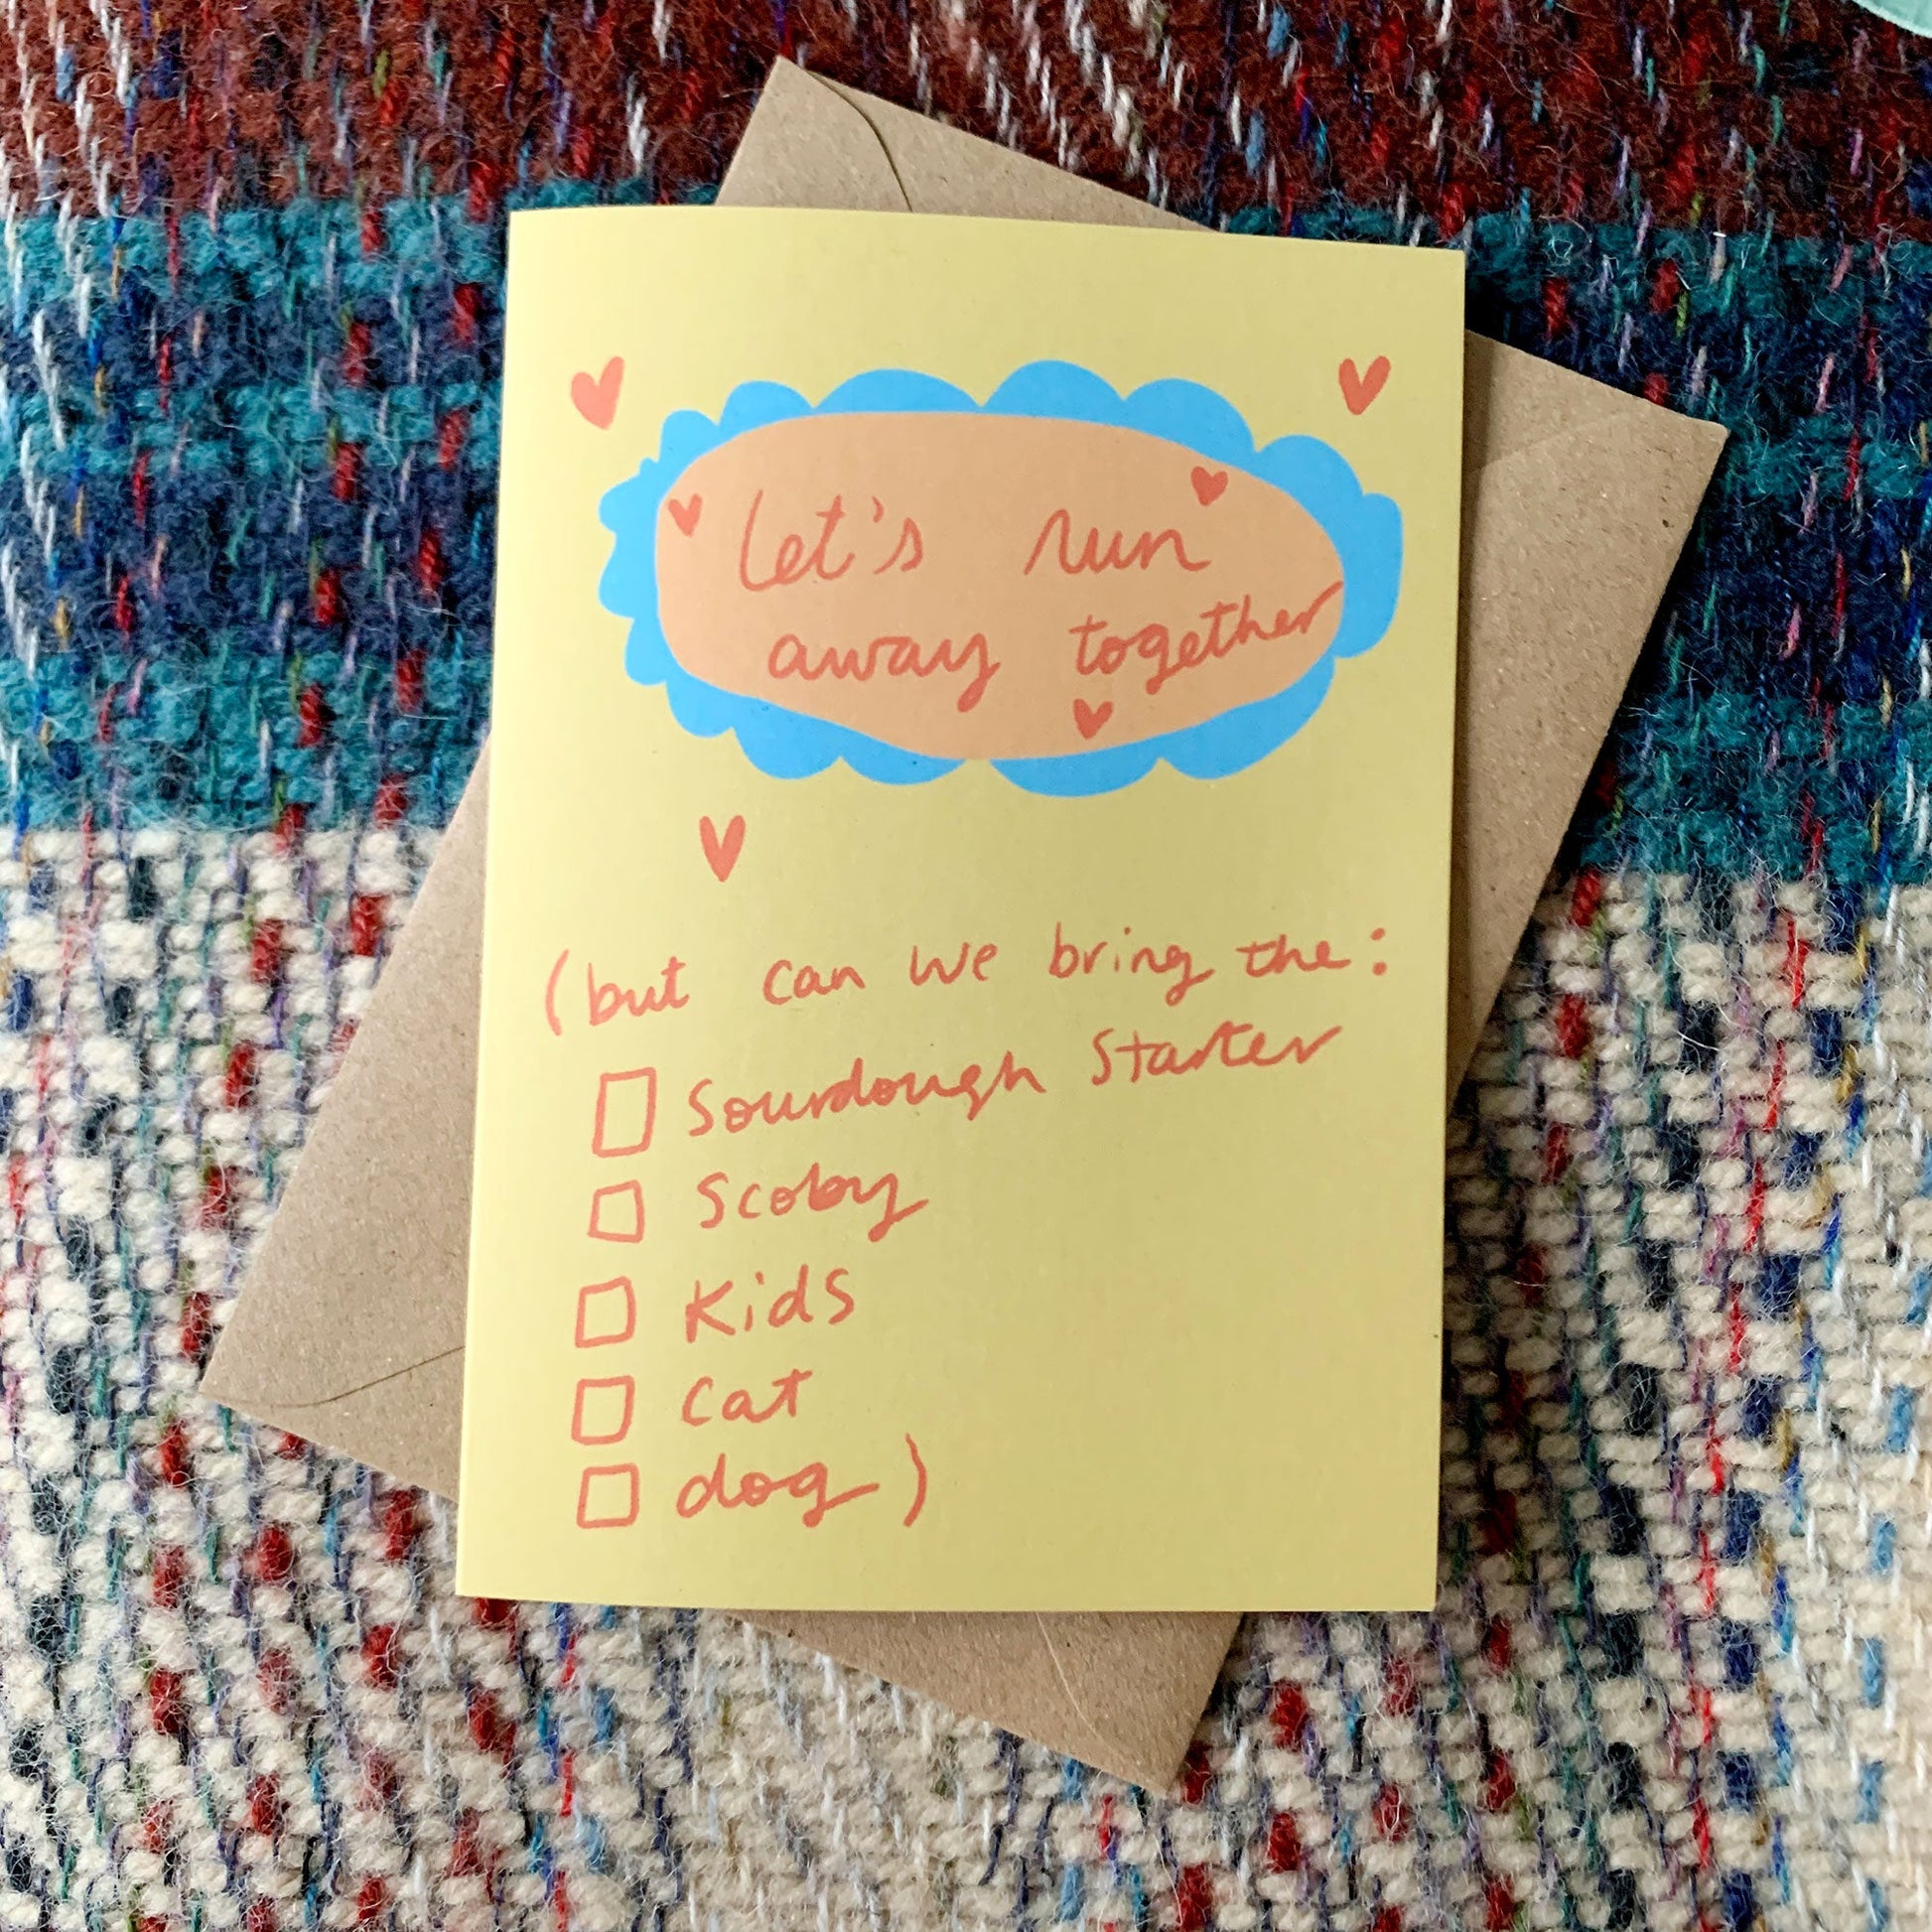 let's run
away together
(but can we bring the:
Sourdough Starter
Scoby
Kids
Cat
dog)